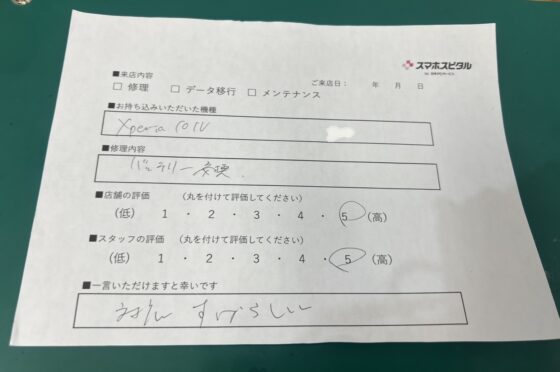 スマホスピタル
■来店内容
ご来店日： 年 月 日
□ 修理 □ データ移行 □ メンテナンス
■お持ち込みいただいた機種
Xperia 10 IV
■修理内容
バッテリー交換
■店舗の評価 （丸を付けて評価してください）
（低） 1 ・ 2 ・ 3 ・ 4 ・ 5 （高）
■スタッフの評価 （丸を付けて評価してください）
（低） 1 ・ 2 ・ 3 ・ 4 ・ 5 （高）
■一言いただけますと幸いです
すばらしい